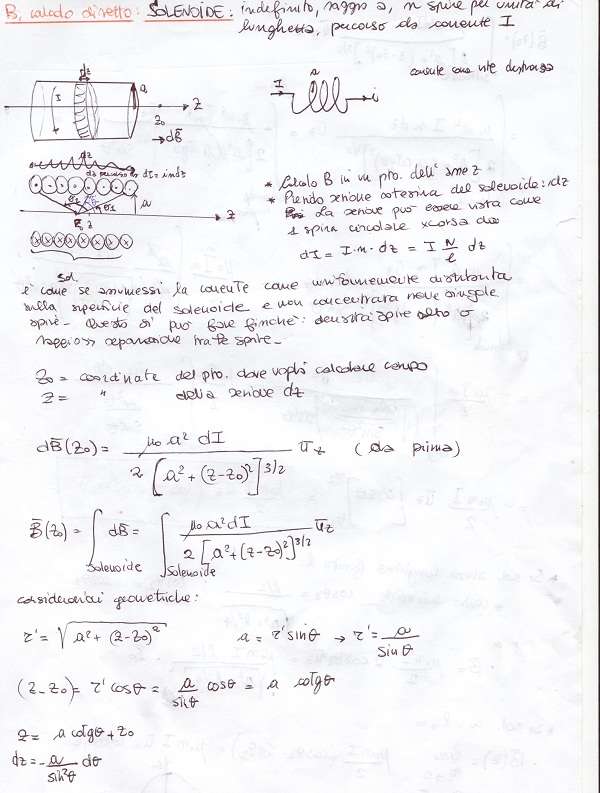 B, calcolo diretto: SOLENOIDE: indefinito, raggio a, n spire per unità di
lunghezza, percorso da corrente I
dz
a
I
z
z₀
dB̄
a
I
i
corrente come vite destrorsa
dz
da percorso in dI = indz
θ₂
θ1
a
z
z
* Calcolo B in un pto. dell'asse z
* Prendo sezione esterna del solenoide: dz
La sezione può essere vista come
1 spira circolare xcorsa da
dI = I·n·dz = I N/l dz
sol.
è come se ammessi la corrente come uniformemente distribuita
sulla superficie del solenoide e non concentrata nelle singole
spire - Questo si può fare finché: densità spire alta o
raggio >> separazione tra le spire -
z₀ = coordinate del pto. dove voglio calcolare campo
z = " della sezione dz
dB̄(z₀) = μ₀ a² dI / 2 [a² + (z-z₀)²]^3/2 ū_z (da prima)
B̄(z₀) = ∫ dB̄ = ∫ μ₀ a² dI / 2 [a² + (z-z₀)²]^3/2 ū_z
Solenoide Solenoide
considerazioni geometriche:
r' = √a² + (z-z₀)² a = r' sinθ → r' = a / sinθ
(z-z₀) = r' cosθ = a / sinθ cosθ = a cotgθ
z = a cotgθ + z₀
dz = - a / sin²θ dθ